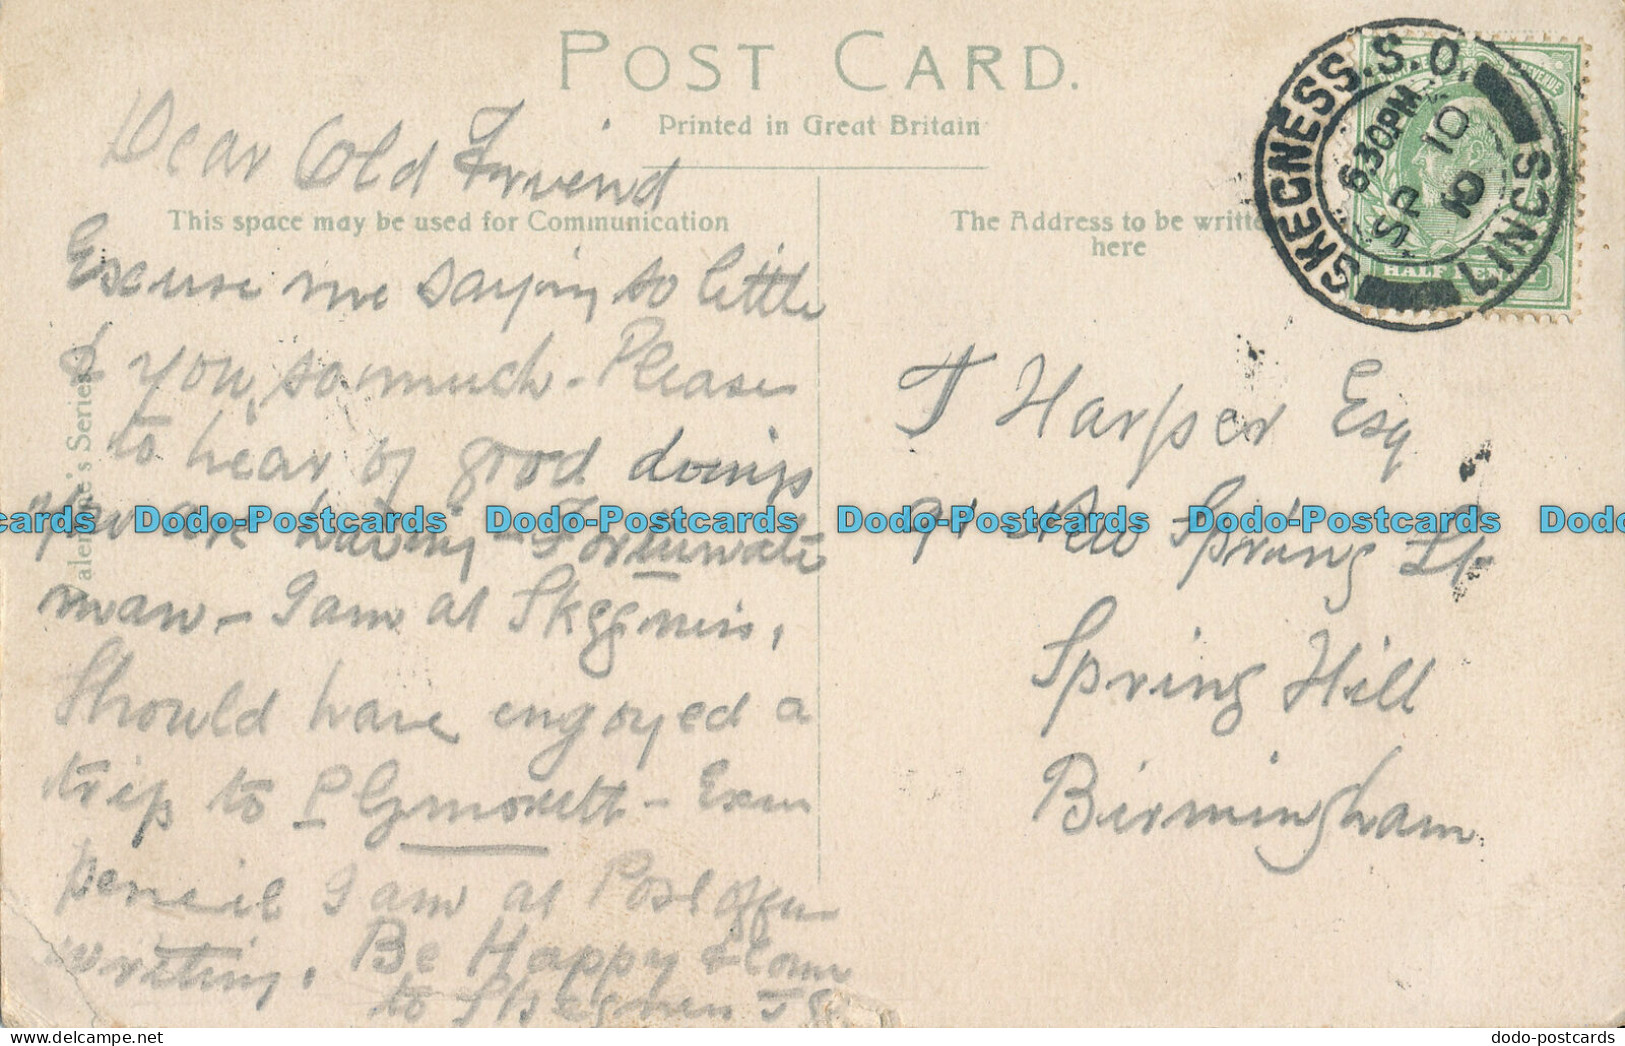 POST CARD.
Printed in Great Britain
This space may be used for Communication
The Address to be written
here
Valentine's Series
SKEGNESS.S.O.
LINCS
630PM
SP 10
10
HALF
Dear Old Friend
Excuse me saying so little
& you so much. Please
to hear of good doings
you are having - Fortunate
man - I am at Skegness,
Should have engoyed a
trip to Plymouth - Excu
pencil I am at Post offic
writing. Be Happy & Come
to Skegness
T Harper Esq
91 New Spring St
Spring Hill
Birmingham
Dodo-Postcards Dodo-Postcards Dodo-Postcards Dodo-Postcards
dodo-postcards dodo-postcards.com